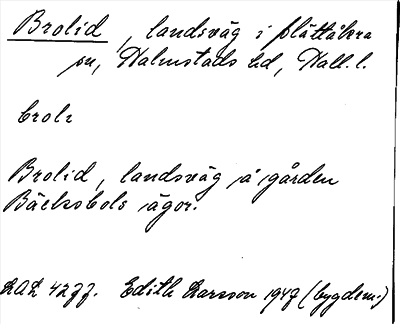 Brolid, landsväg i Slättåkra
sn, Halmstads hd, Hall. l.
brolı
Brolid, landsväg å gården
Bäcksbols ägor.
LAL 4277. Edith Larsson 1947 (bygdem.)